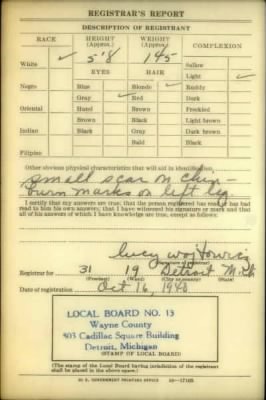 REGISTRAR'S REPORT
DESCRIPTION OF REGISTRANT
RACE HEIGHT (Approx.) WEIGHT (Approx.) COMPLEXION
White ✓ 5'8 145 Sallow
Light ✓
EYES HAIR Ruddy
Negro Blue Blonde ✓ Dark
Gray ✓ Red Freckled
Oriental Hazel Brown Light brown
Brown Black Dark brown
Indian Black Gray Black
Bald
Filipino
Other obvious physical characteristics that will aid in identification
small scar on chin -
burn marks on left leg.
I certify that my answers are true; that the person registered has read or has had
read to him his own answers; that I have witnessed his signature or mark and that
all of his answers of which I have knowledge are true, except as follows:
Lucy
Registrar for 31 19 Detroit Mich
(Precinct) (Ward) (City or county) (State)
Date of registration Oct 16, 1940
LOCAL BOARD NO. 13
Wayne County
803 Cadillac Square Building
Detroit, Michigan
(STAMP OF LOCAL BOARD)
(The stamp of the Local Board having jurisdiction of the registrant
shall be placed in the above space.)
U. S. GOVERNMENT PRINTING OFFICE 16—17105